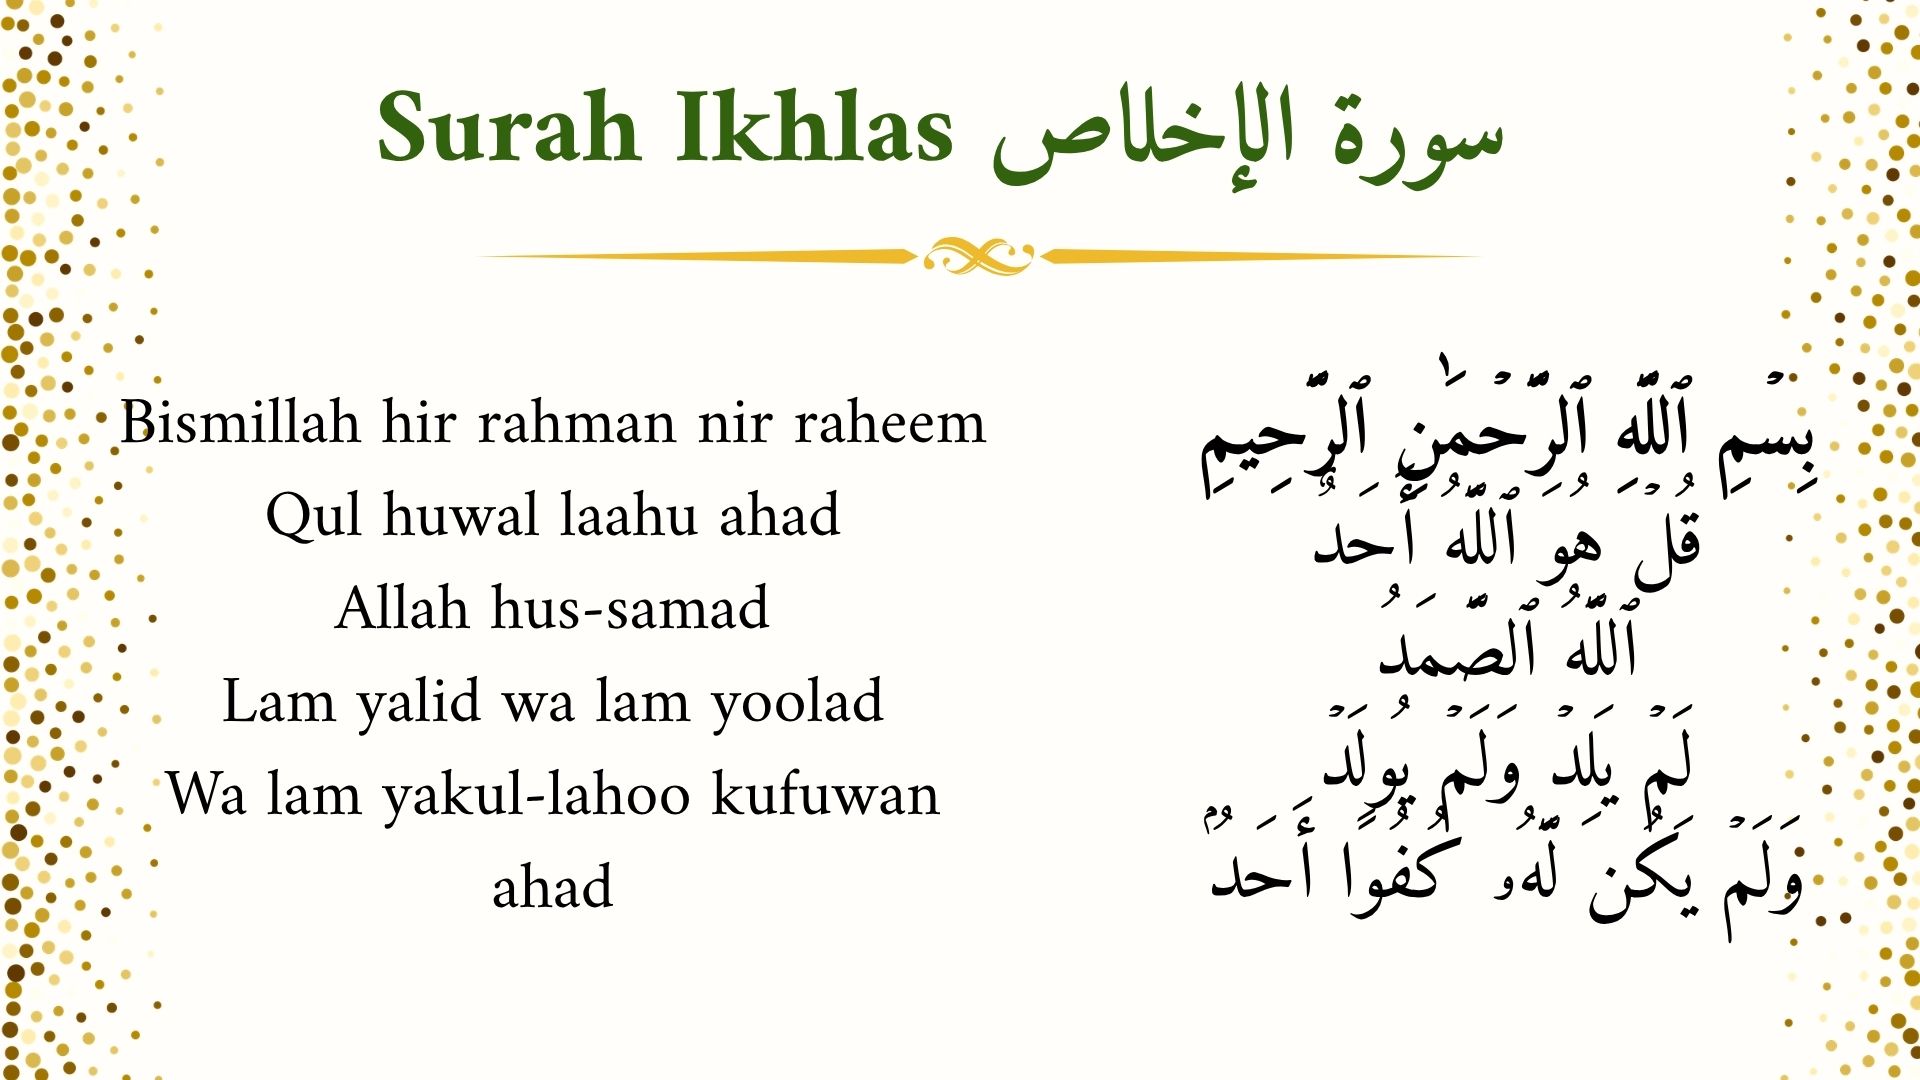 Surah Ikhlas سورة الإخلاص
Bismillah hir rahman nir raheem
Qul huwal laahu ahad
Allah hus-samad
Lam yalid wa lam yoolad
Wa lam yakul-lahoo kufuwan
ahad
بِسۡمِ ٱللَّهِ ٱلرَّحۡمَٰنِ ٱلرَّحِيمِ
قُلۡ هُوَ ٱللَّهُ أَحَدٌ
ٱللَّهُ ٱلصَّمَدُ
لَمۡ يَلِدۡ وَلَمۡ يُولَدۡ
وَلَمۡ يَكُن لَّهُۥ كُفُوًا أَحَدُۢ